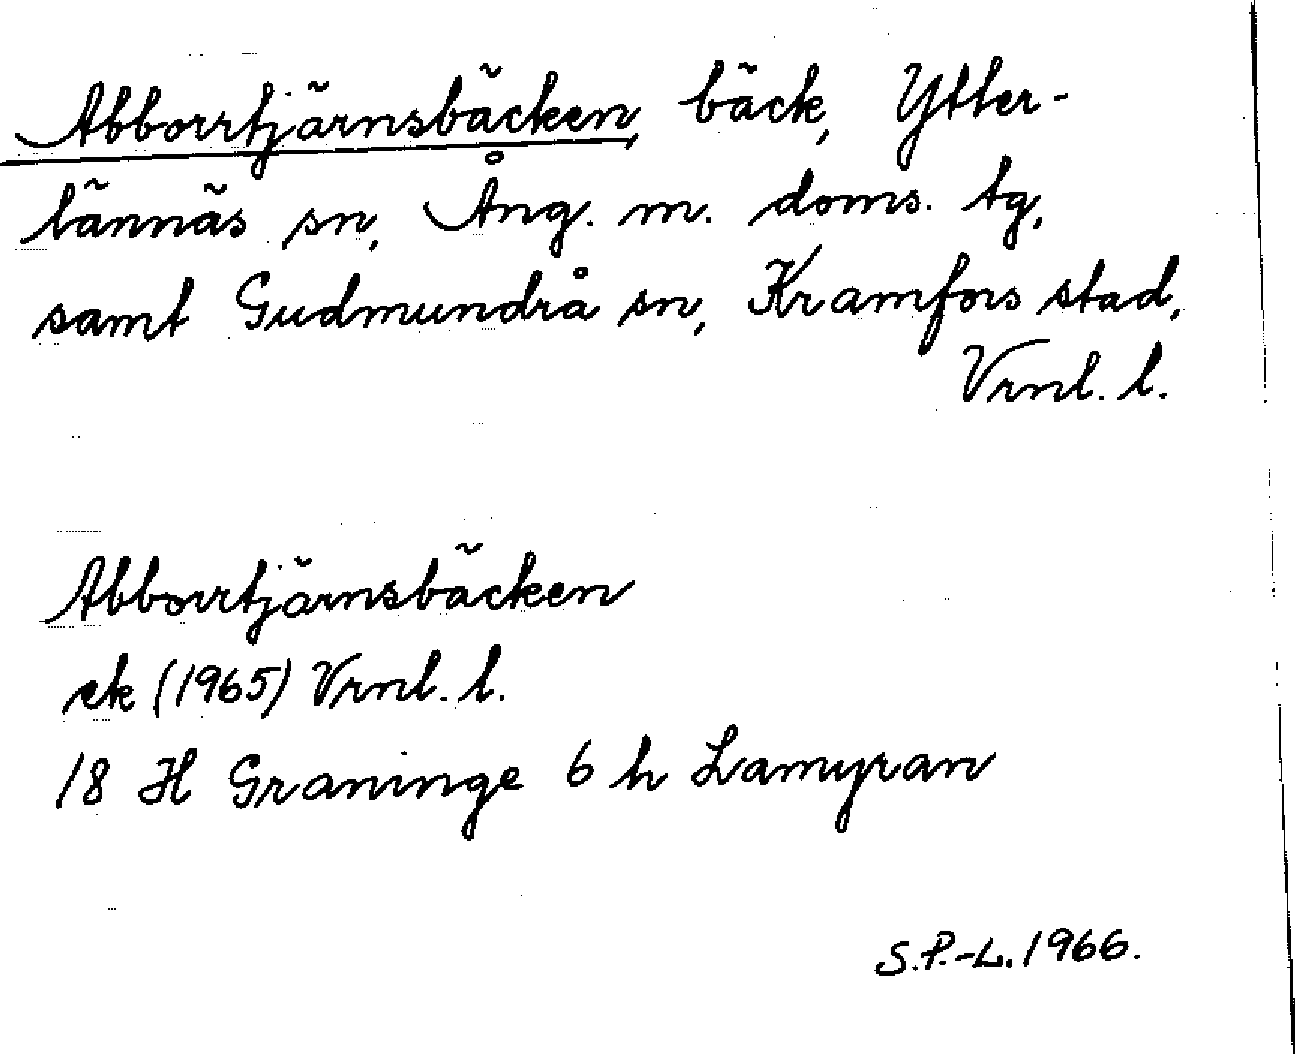 Abborrtjärnsbäcken, bäck, Ytter-
lännäs sn, Ång. m. doms. tg,
samt Gudmundrå sn, Kramfors stad,
Vrnl. l.
Abborrtjärnsbäcken
ek (1965) Vrnl. l.
18 H Graninge 6 h Lamyran
S.P.-L. 1966.